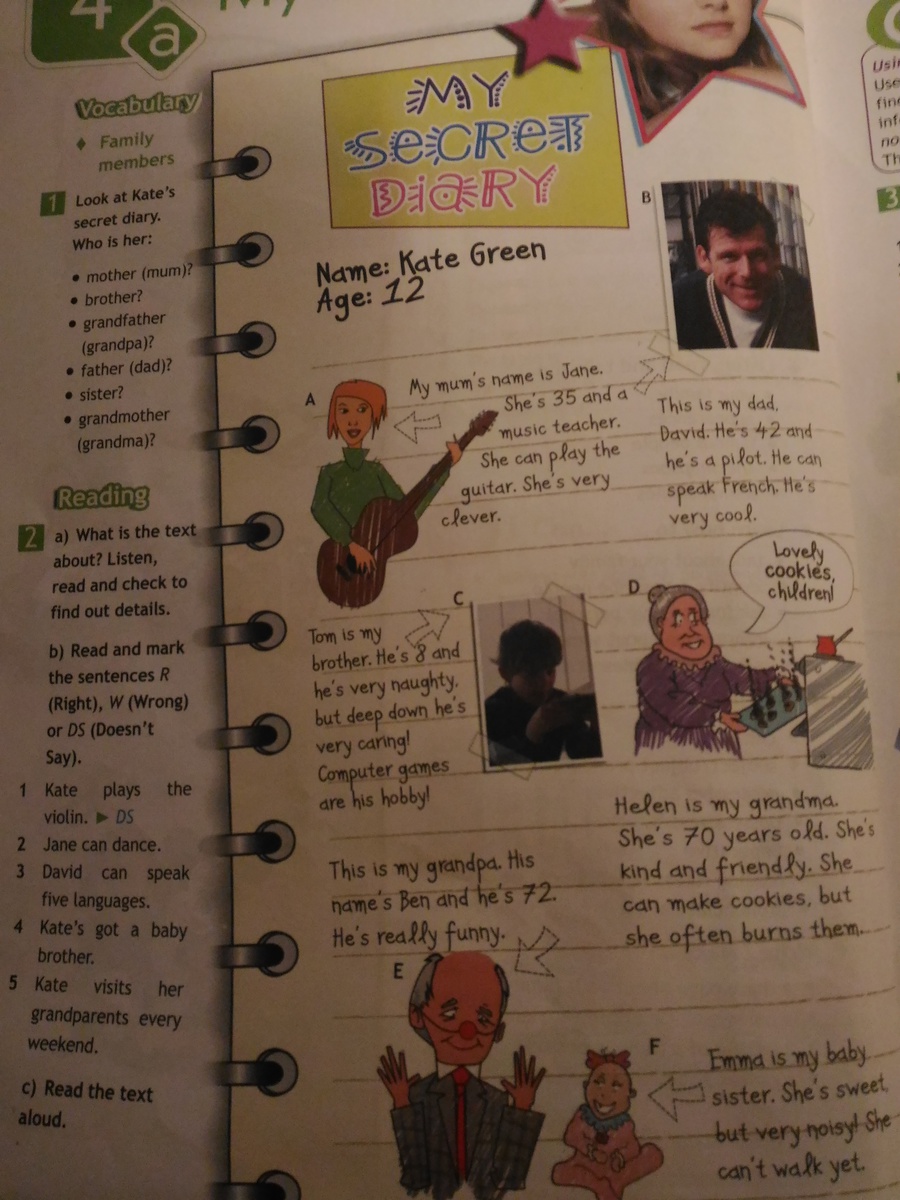 4
a
My
Vocabulary
♦ Family
members
1 Look at Kate's
secret diary.
Who is her:
• mother (mum)?
• brother?
• grandfather
(grandpa)?
• father (dad)?
• sister?
• grandmother
(grandma)?
Reading
2 a) What is the text
about? Listen,
read and check to
find out details.
b) Read and mark
the sentences R
(Right), W (Wrong)
or DS (Doesn't
Say).
1 Kate plays the
violin. ► DS
2 Jane can dance.
3 David can speak
five languages.
4 Kate's got a baby
brother.
5 Kate visits her
grandparents every
weekend.
c) Read the text
aloud.
MY
SECRET
DIARY
Name: Kate Green
Age: 12
A
My mum's name is Jane.
She's 35 and a
music teacher.
She can play the
guitar. She's very
clever.
B
This is my dad,
David. He's 42 and
he's a pilot. He can
speak French. He's
very cool.
C
Tom is my
brother. He's 8 and
he's very naughty,
but deep down he's
very caring!
Computer games
are his hobby!
D
Lovely
cookies,
children!
Helen is my grandma.
She's 70 years old. She's
kind and friendly. She
can make cookies, but
she often burns them.
This is my grandpa. His
name's Ben and he's 72.
He's really funny.
E
F
Emma is my baby
sister. She's sweet,
but very noisy! She
can't walk yet.
Use
3